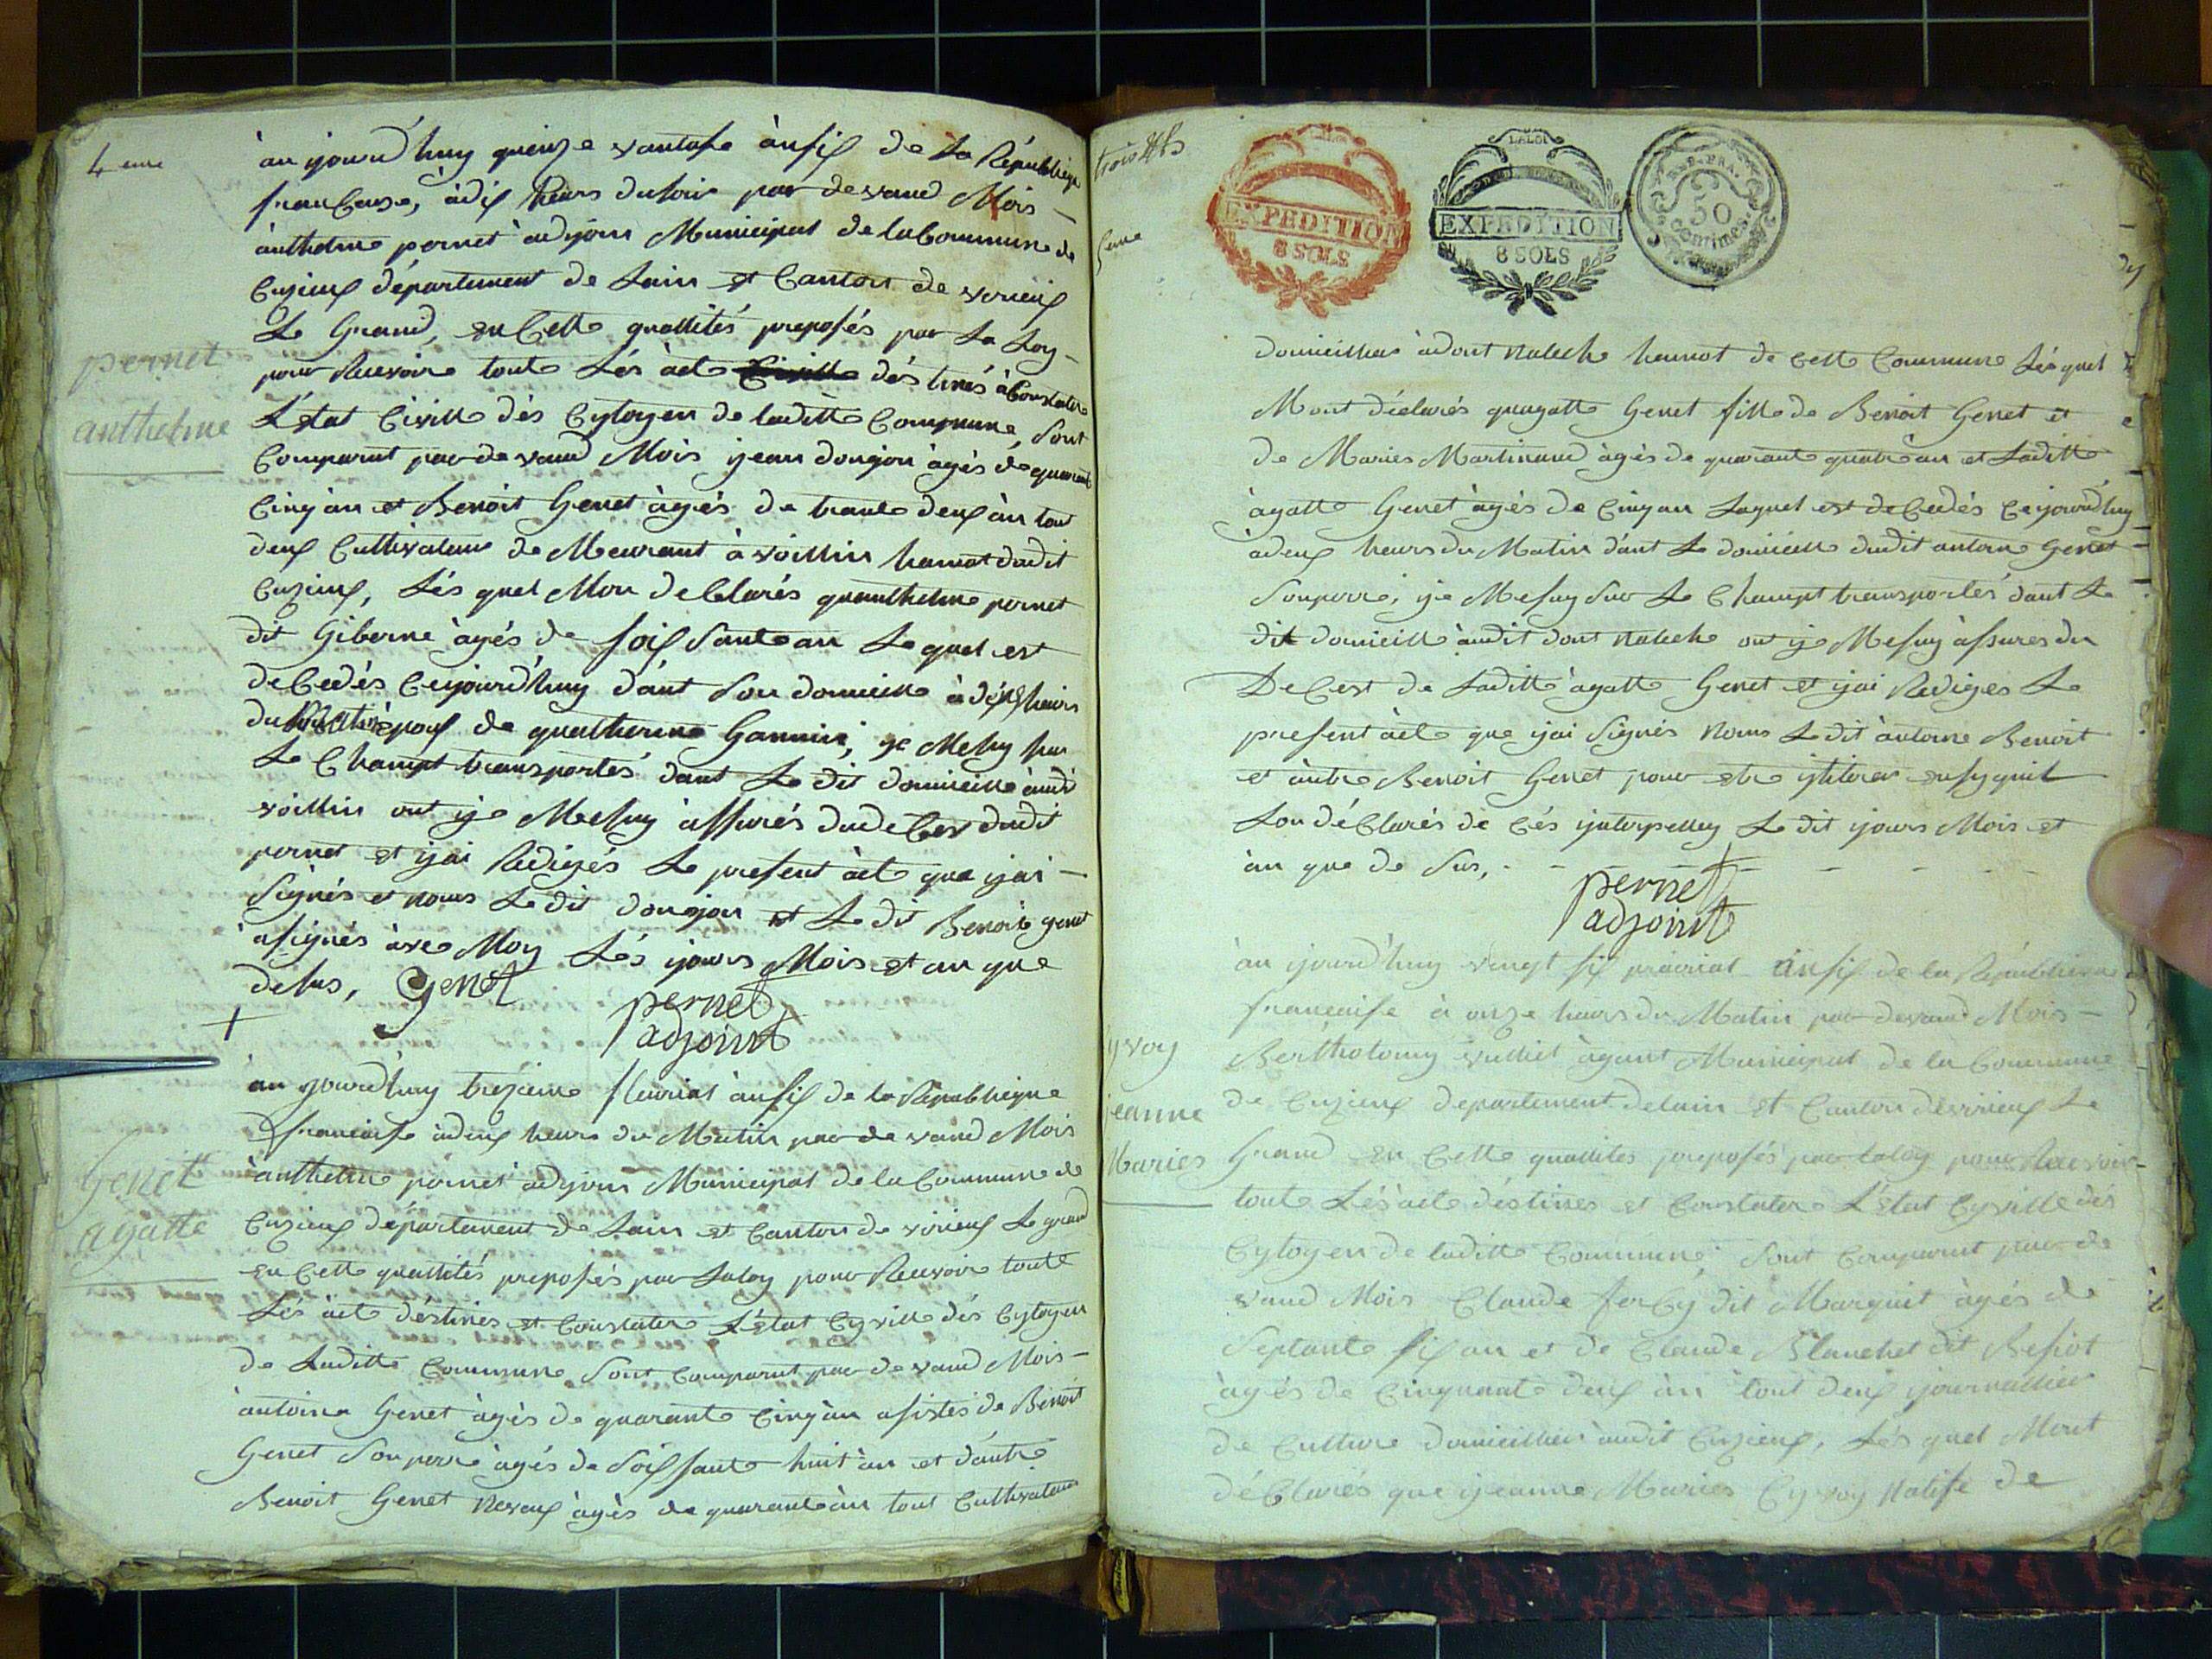 4eme
àu ijourd'huy quinze vantose ànsix de La Républiqu
francaise, àdix heurs dusoir par devand Mois
ànthelme pernet adjoin Municipal de la Commune de
Cuzieux département de Lain et Canton de virieux
Le Grand, en Cette quallités preposés par La Loy
pour Recevoir toute Lés àcte Civille déstinés à Constater
L'état Civille dés Cytoyen de laditte Commune, Sont
Comparut par devand Mois ijean donjon àgés de quarant
Cinq àn et Benoit Genet àgés de trante deux àn tout
deux Cultivateur de Meurant à voillin hamot dudit
Cuzieux, Lés quel Mon déClarés quanthelme pernet
dit Giberne àgés de soixsante an Le quel est
deCedés Ceijourd'huy dànt Son domicille à dix heurs
du Matin èpoux de quatherine Gannin, ije Mesuy sur
Le Champt transportés dant Le dit domicille àudit
voillin out ije Mesuy àssurés dudeCes dudit
pernet et ijai Redigés Le present àcte que ijai
Signés et nous Le dit donjon et Le dit Benoit genet
àsignés àvec Moy Lés ijours Mois et an que
desus, Genet
pernet
adjoint
pernet
anthelme
àu ijourd'huy trezieme fleurial ànsix de la République
francaise àdeux heurs du Matin par devand Mois
ànthelme pernet adjoin Municipal de la Commune de
Cuzieux département de Lain et Canton de virieux Le grand
en Cette quallités preposés par Laloy pour Recevoir toute
Lés àcte déstinés et Constater L'état Cyville dés Cytoyen
de Laditte Commune Sont Comparut par devand Mois
àntoine Genet àgés de quarante Cinq àn asistés de Benoit
Genet Son pere àgés de Soixsante huit àn et d'autre
Benoit Genet neveux àgés de quarante àn tout Cultivateur
Genet
agatte
5eme
LA LOI
EXPEDITION
8 SOLS
LA LOI
EXPEDITION
8 SOLS
REP. FRA.
50
centimes
domicilles àdont hamot de Cette Commune Lés quel
Mont déclarés quagatte Genet fille de Benoit Genet et
de Maries Martinand àgés de quarante quatre àn et Laditte
àgatte Genet àgés de Cinq an Laquel est deCedés Ceijourd'huy
àdeux heurs du Matin dànt Le domicille dudit antoine Genet
Sonperre, ije Mesuy Sur Le Champt transportés dant Le
dit domicille àudit dont out ije Mesuy àssures du
DeCest de Laditte àgatte Genet et ijai Rediges Le
present àcte que ijai Signés nous Le dit àntoine Benoit
et àutre Benoit Genet pour etre ylliteres ensy quil
Lon déClarés de Cés ijnterpellez Le dit ijours Mois et
àn que de Sus,
pernet
adjoint
àu ijourd'huy vingt six prairial ànsix de la République
francaise à onze heurs du Matin par devand Mois
Bertholomy vulliet àgant Municipal de la Commune
de Cuzieux departement delain et Canton de virieux Le
Grand en Cette quallites preposés par laloy pour Recevoir
toute Lés àcte déstinés et Constater L'état Cyville dés
Cytoyen de laditte Commune, Sont Comparut par de
vand Mois Claude ferCy dit Marquit àgés de
Septante six an et de Claude Blanchet dit Besiot
àgés de Cinquante deux àn tout deux ijournallier
de Culture domicillier àudit Cuzieux, Lés quel Mont
déClarés que ijeanne Maries Cyvoy Natife de
yvoy
jeanne
Maries